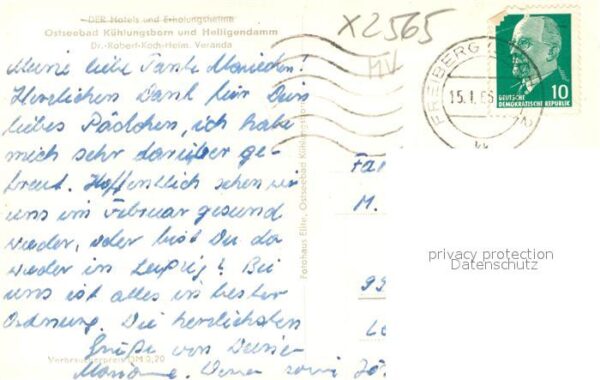 DER Hotels und Erholungsheime
Ostseebad Kühlungsborn und Heiligendamm
Dr.-Robert-Koch-Heim. Veranda
X2565
MV
FREIBERG (SACHS) 2
15.1.65
10
DEUTSCHE
DEMOKRATISCHE REPUBLIK
Meine liebe Tante Mariechen!
Herzlichen Dank für Dein
liebes Päckchen, ich habe
mich sehr darüber ge-
freut. Hoffentlich sehen wir
uns im Februar gesund
wieder, oder bist Du da
wieder in Leipzig? Bei
uns ist alles in bester
Ordnung. Die herzlichsten
Grüße von Deiner
Marianne, sowie
Fotohaus Elite, Ostseebad Kühlungsborn
Verbraucherpreis DM 0,20
Fa
M.
99
privacy protection
Datenschutz